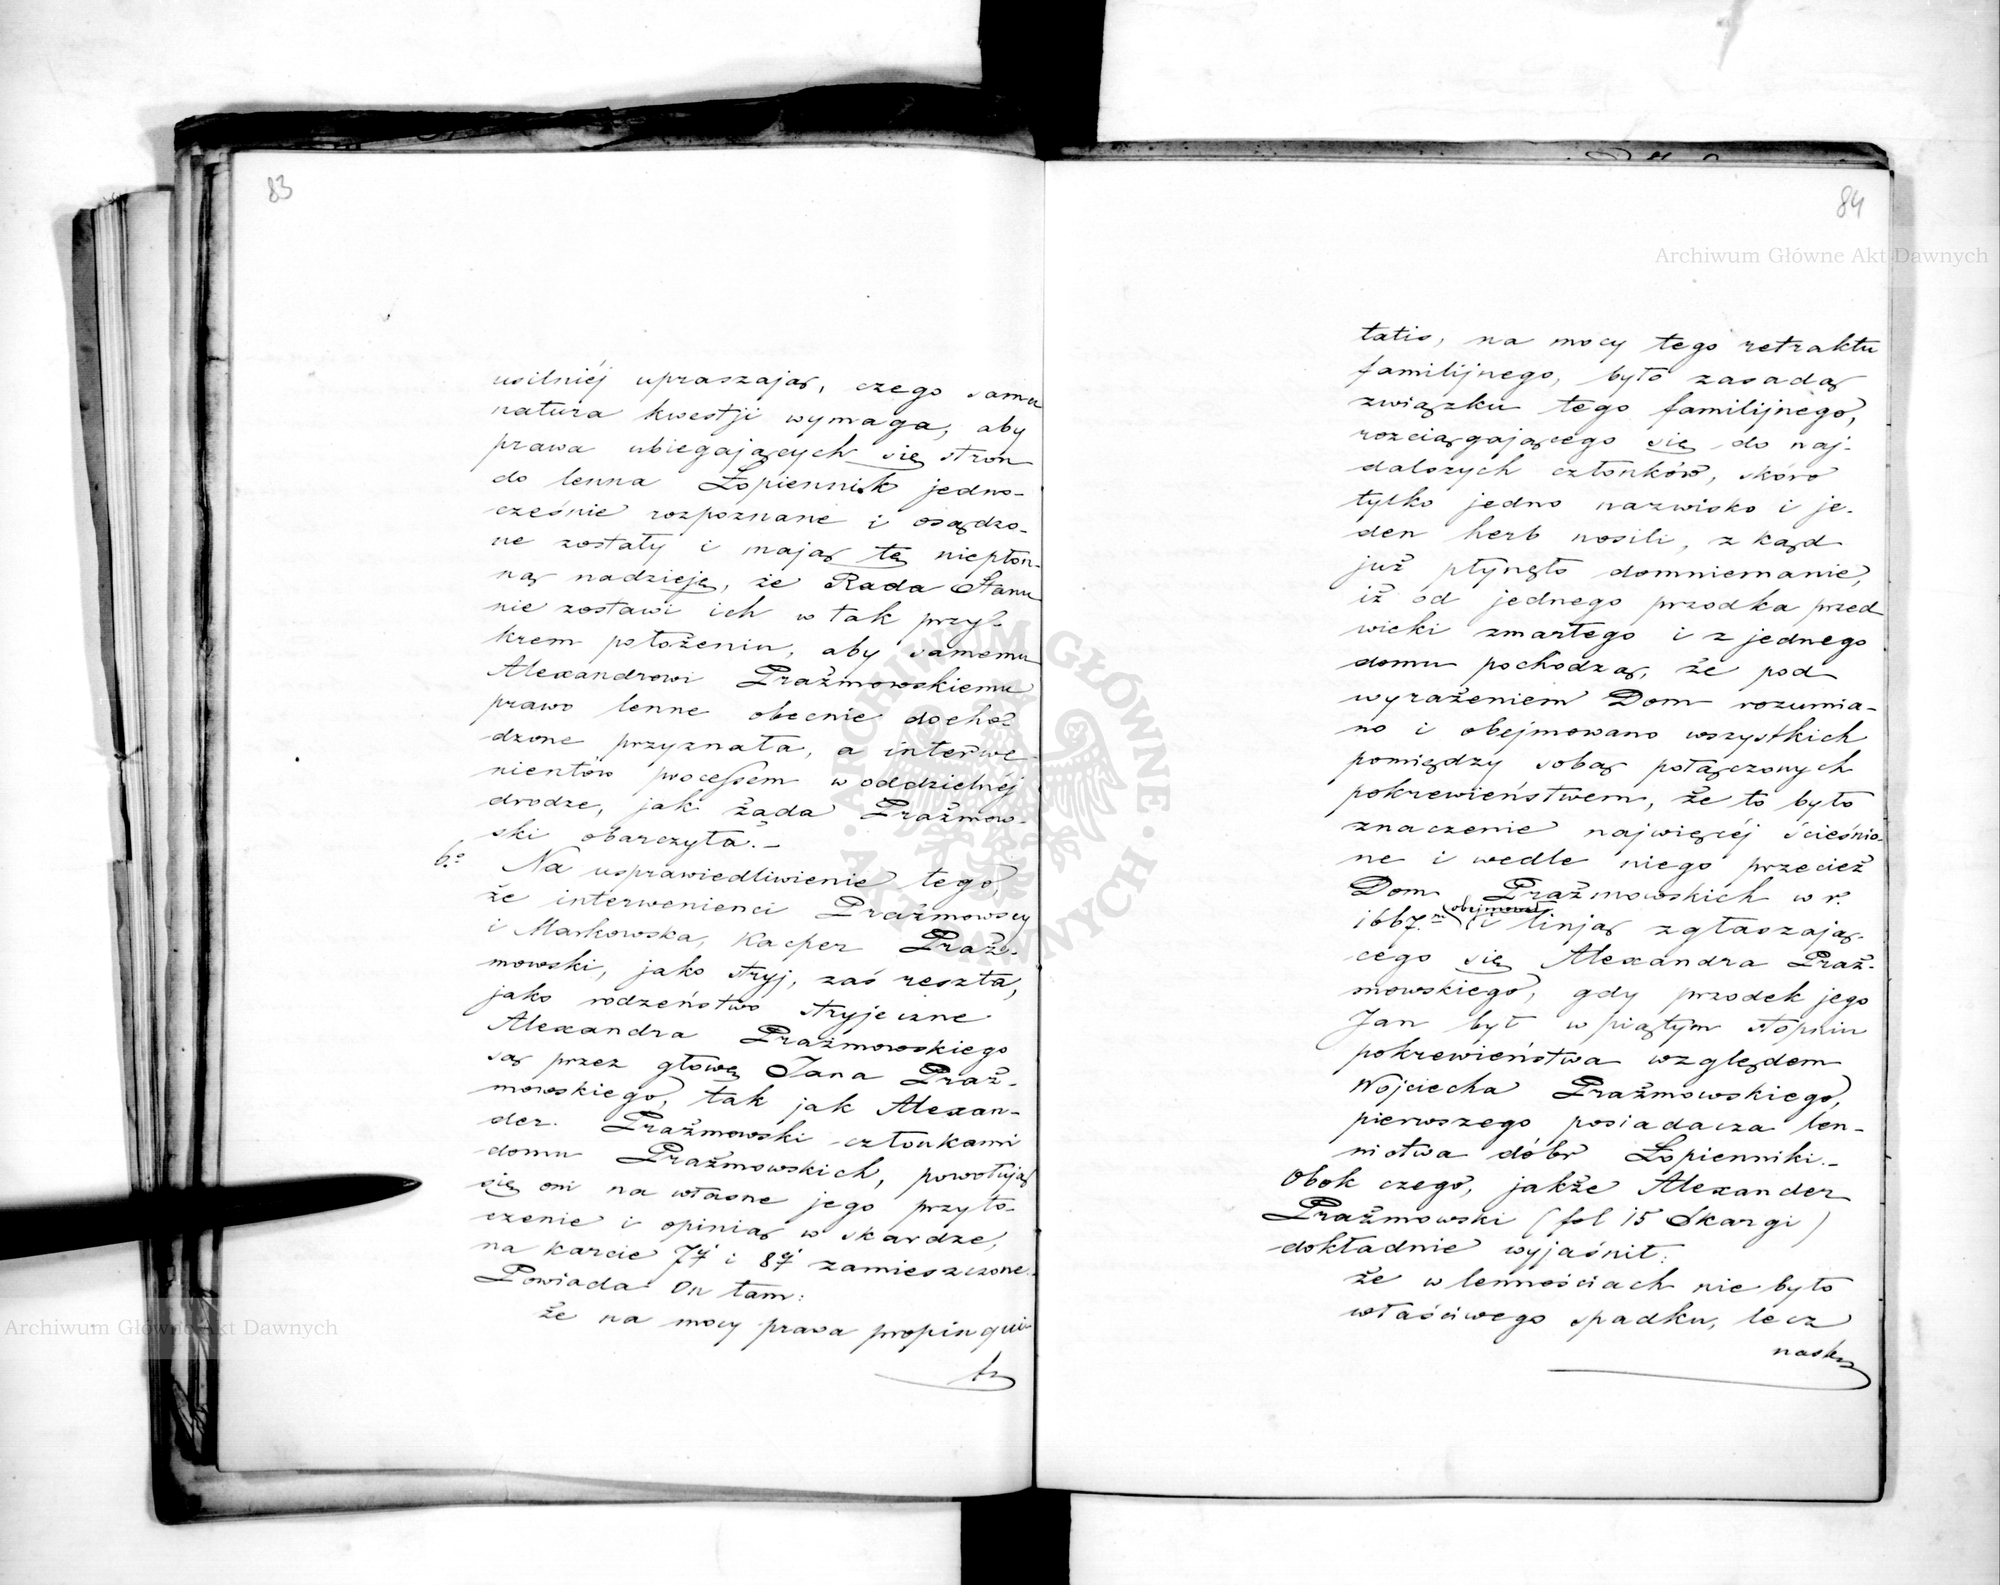 83
usilniéj upraszają, czego sama
natura kwestji wymaga, aby
prawa ubiegających się stron
do lenna Łopiennik jedno-
cześnie rozpoznane i osądzo-
ne zostały i mają tę niepłon-
ną nadzieję, że Rada Stanu
nie zostawi ich w tak przy-
krem położeniu, aby samemu
Alexandrowi Prażmowskiemu
prawo lenne obecnie docho-
dzone przyznała, a interwe-
nientów processem w oddzielnéj
drodze, jak żąda Prażmow-
ski obarczyła.-
6.° Na usprawiedliwienie tego,
że interwenienci Prażmowscy
i Markowska, Kacper Praż-
mowski, jako stryj, zaś reszta,
jako rodzeństwo stryjeczne
Alexandra Prażmowskiego
są przez głowę Jana Praż-
mowskiego, tak jak Alexan-
der Prażmowski członkami
domu Prażmowskich, powołują
się oni na własne jego przyto-
czenie i opinią w skardze,
na karcie 7éj i 8éj zamieszczone.
Powiada On tam:
że na mocy prawa propinqui-
ta
84
tatis, na mocy tego retraktu
familijnego, było zasadą
związku tego familijnego,
rozciągającego się do naj-
dalszych członków, skóro
tylko jedno nazwisko i je-
den herb nosili, z kąd
już płynęło domniemanie,
iż od jednego przodka przed
wieki zmarłego i z jednego
domu pochodzą, że pod
wyrażeniem Dom rozumia-
no i obejmowano wszystkich
pomiędzy sobą połączonych
pokrewieństwem, że to było
znaczenie najwięcéj ścieśnio-
ne i wedle niego przecież
Dom Prażmowskich w r.
obejmował
1667.m i linją zgłaszają-
cego się Alexandra Praż-
mowskiego, gdy przodek jego
Jan był w piątym stopniu
pokrewieństwa względem
Wojciecha Prażmowskiego,
pierwszego posiadacza len-
nictwa dóbr Łopienniki.-
Obok czego, jakże Alexander
Prażmowski (fol 15 Skargi)
dokładnie wyjaśnił:
że w lennościach nie było
właściwego spadku, lecz
nastę
Archiwum Główne Akt Dawnych
Archiwum Główne Akt Dawnych
ARCHIWUM GŁÓWNE AKT DAWNYCH